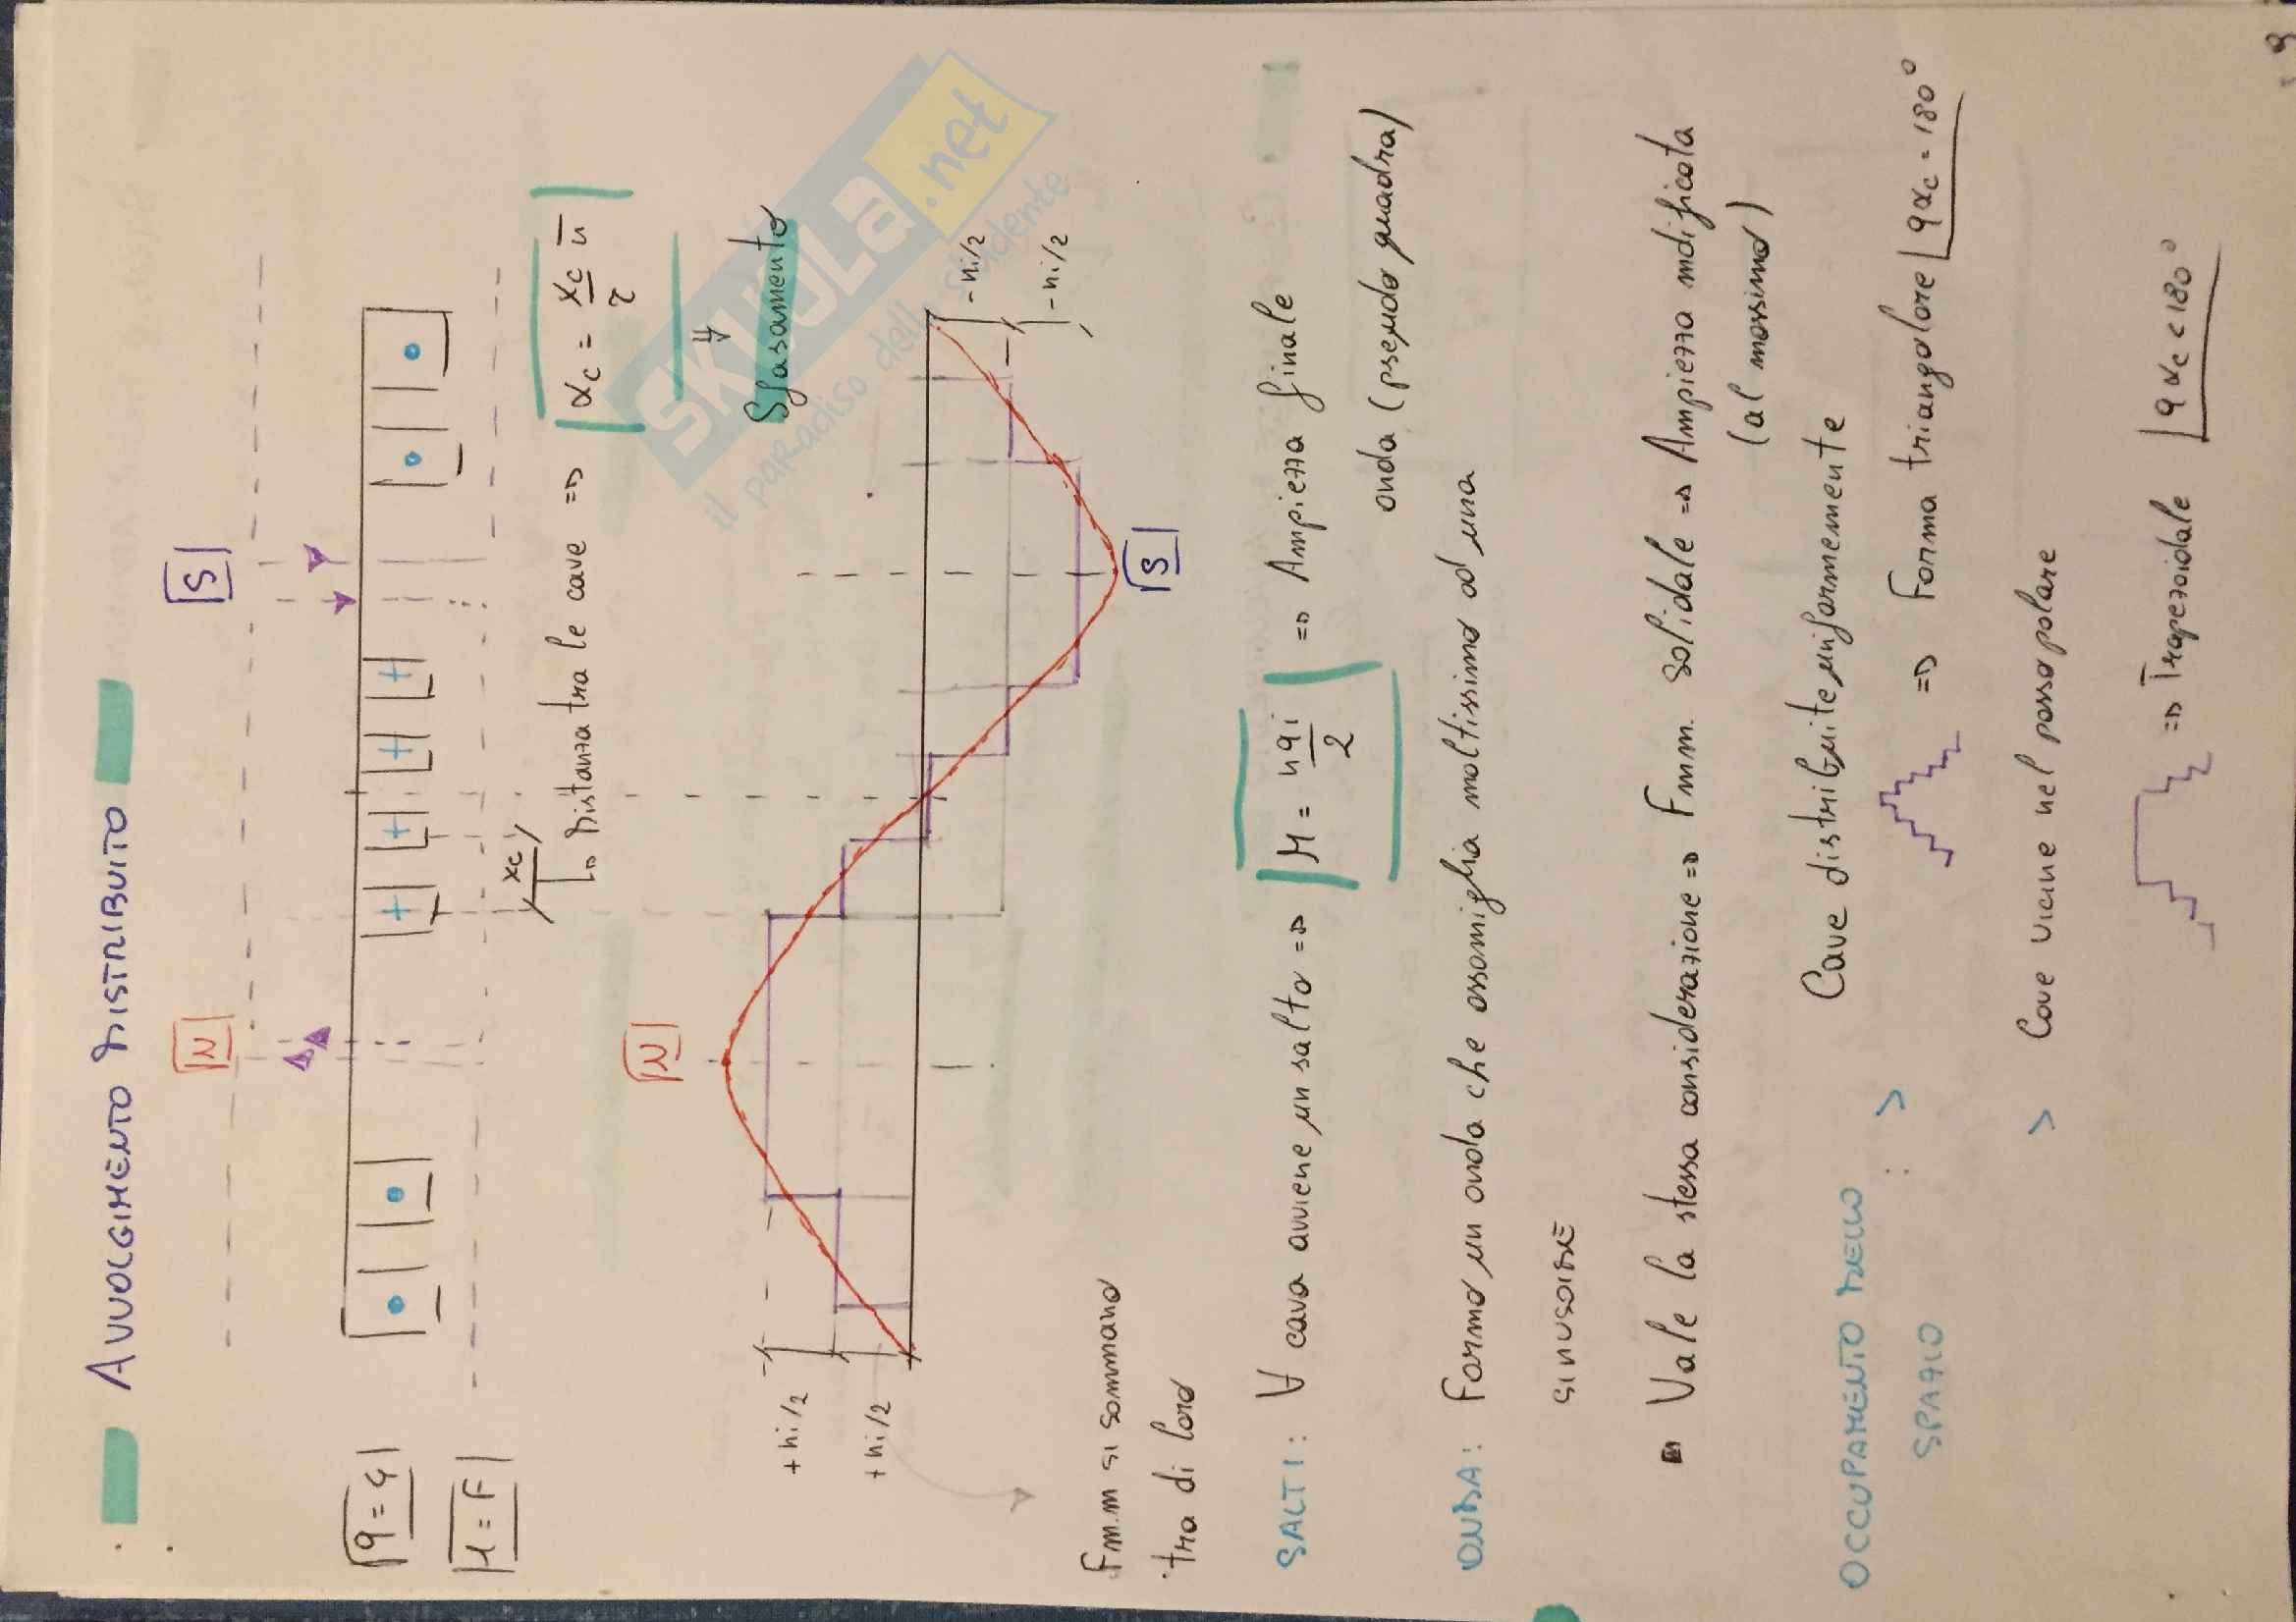 AVVOLGIMENTO DISTRIBUITO
N
S
q = 4
μ = F
xc
Distanza tra le cave => αc = xc/τ π
Sfasamento
N
+ni/2
+ni/2
-ni/2
-ni/2
S
Fm.m si sommano
tra di loro
SALTI: ∀ cava avviene un salto => M = nqi/2 => Ampiezza finale
onda (pseudo quadra)
ONDA: Formo un onda che assomiglia moltissimo ad una
SINUSOIDE
Vale la stessa considerazione => Fmm. solidale => Ampiezza modificata
(al massimo)
OCCUPAMENTO DELLO
SPAZIO
: > Cave distribuite uniformemente
=> Forma triangolare qαc = 180°
> Cave vicine nel passo polare
=> Trapezoidale qαc < 180°
9
SKUOLA.net
il paradiso dello studente